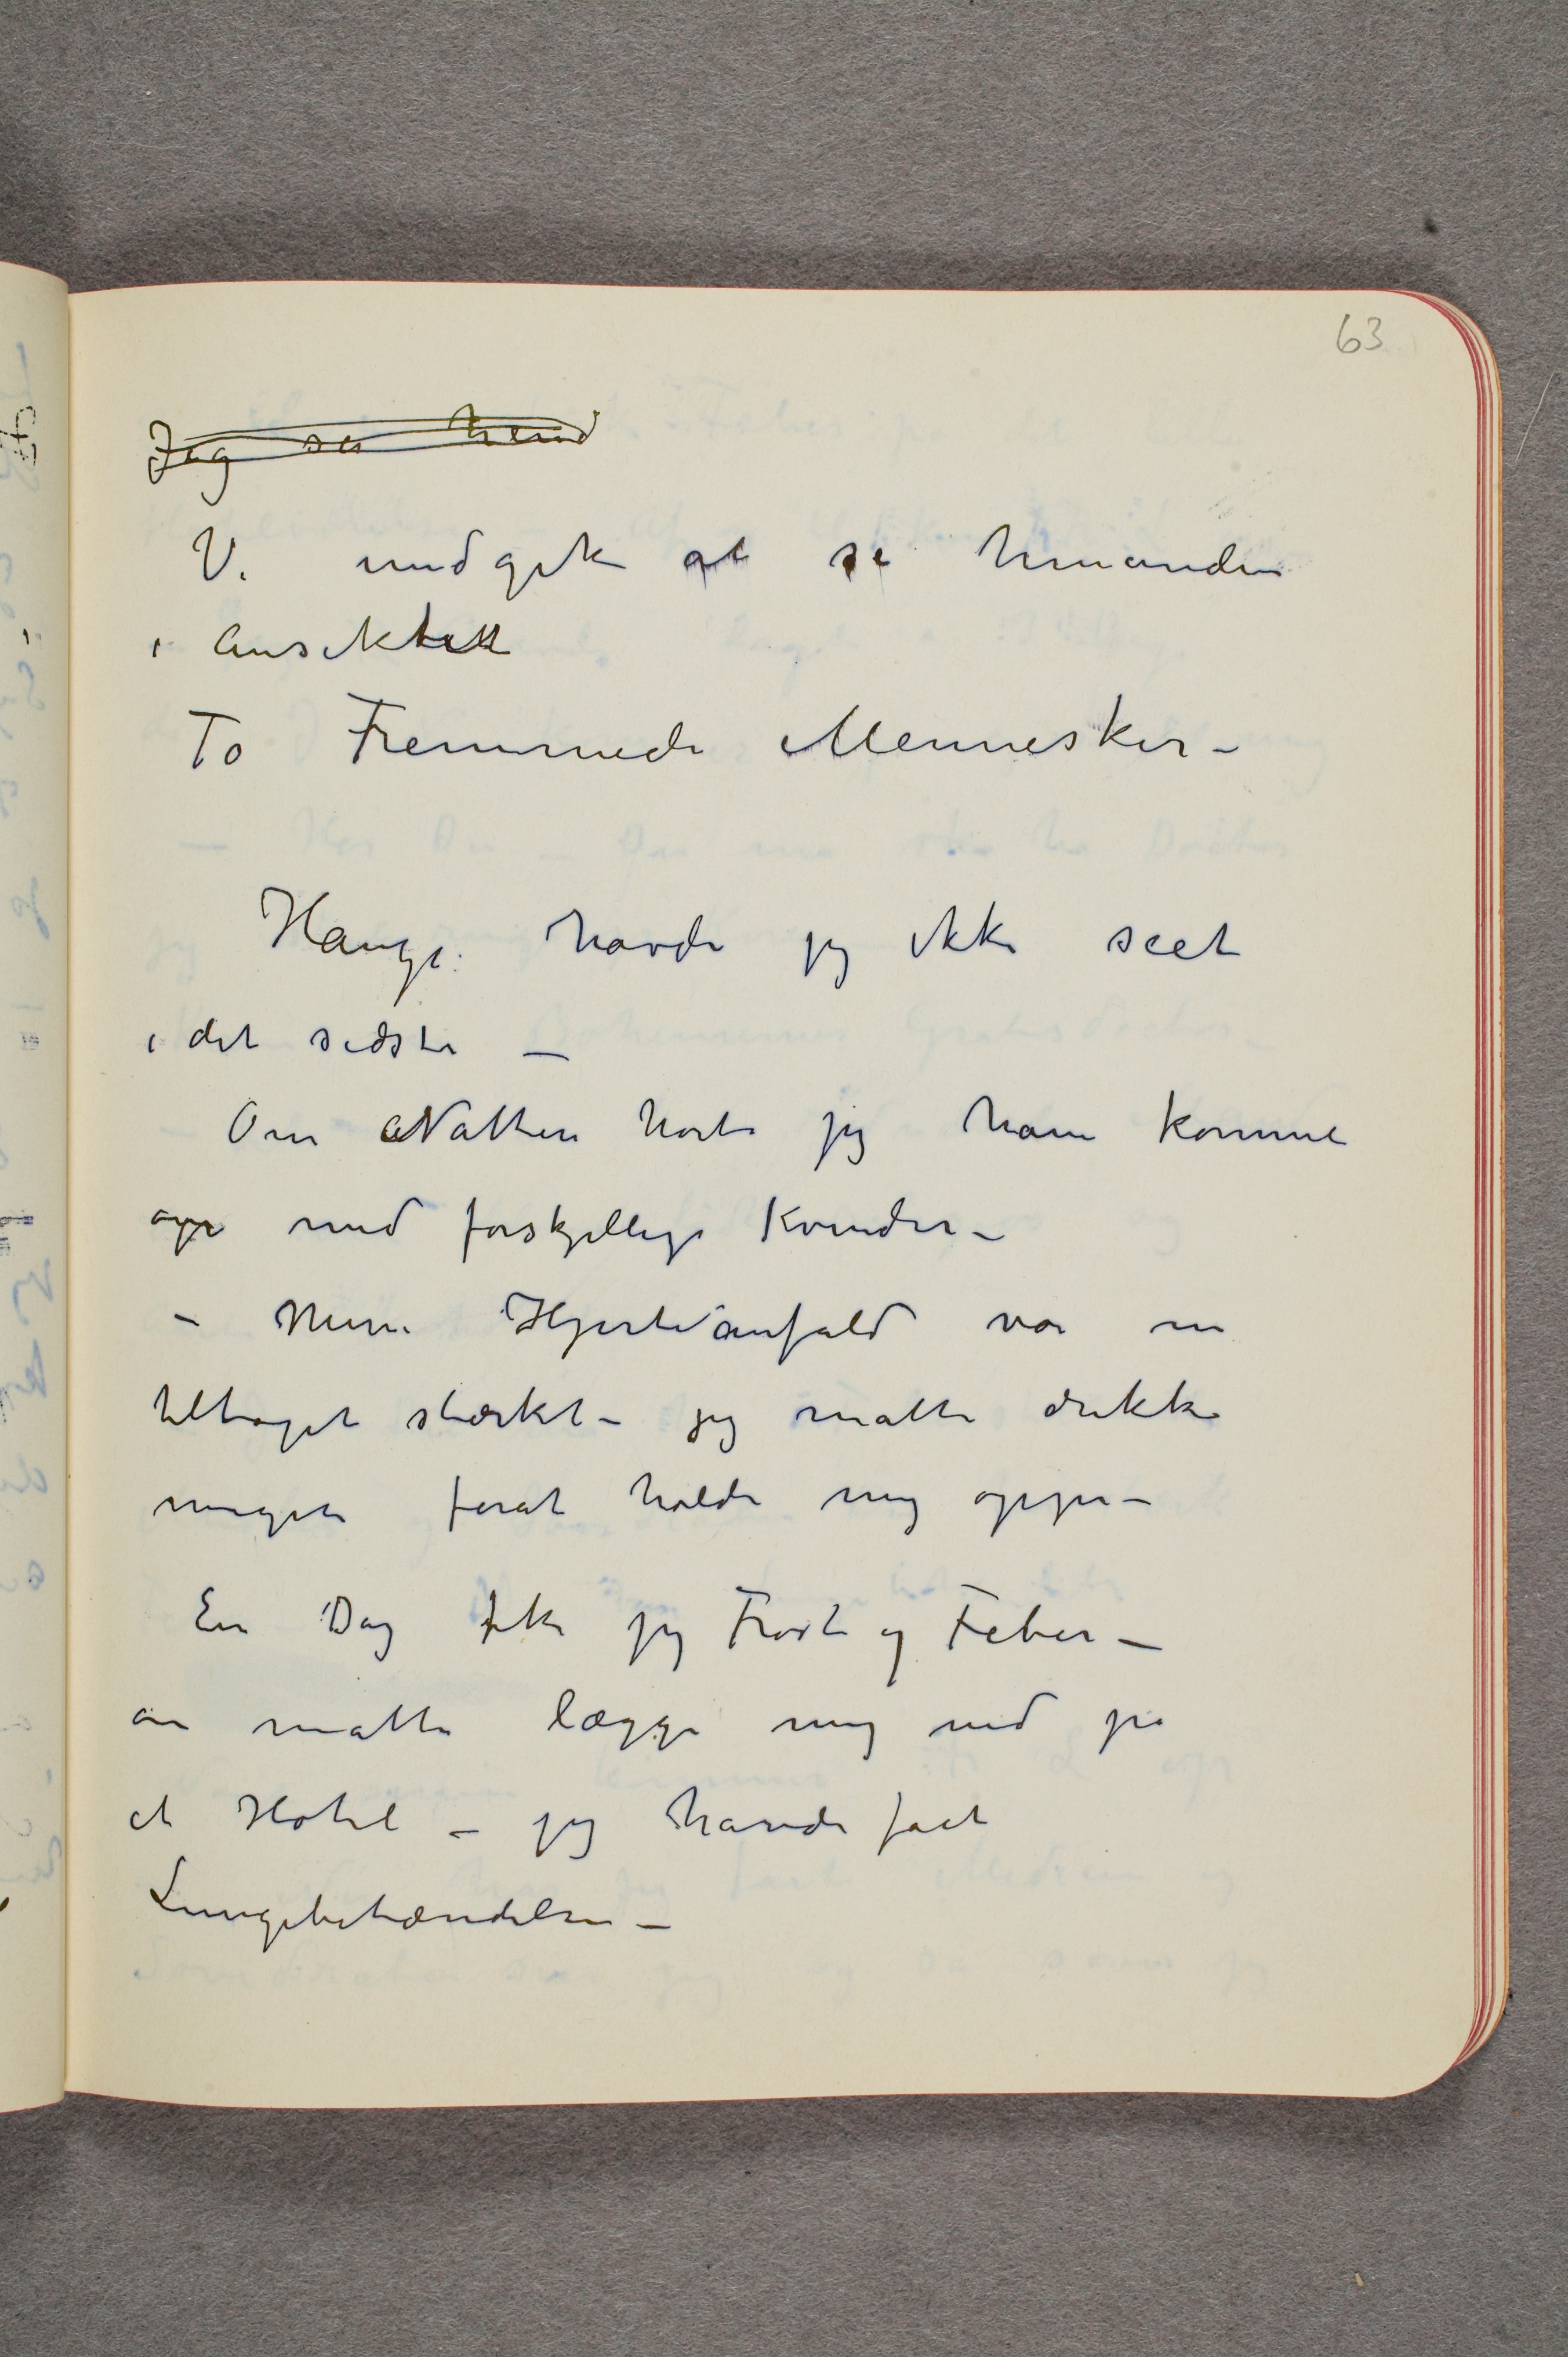 63
Jeg sa hend
Vi undgik at se hinanden
i Ansiktet
To Fremmede Mennesker –
Hauge havde jeg ikke seet
i det sidste –
Om Natten hørte jeg ham komme
op med forskjellige Kvinder –
– Mine Hjerteanfald var nu
tiltaget stærkt – jeg måtte drikke
meget forat holde mig oppe –
En Dag fik jeg Frost og Feber –
måtte lægge mig ned på
et Hotel – jeg havde fåt
Lungebetændelse –